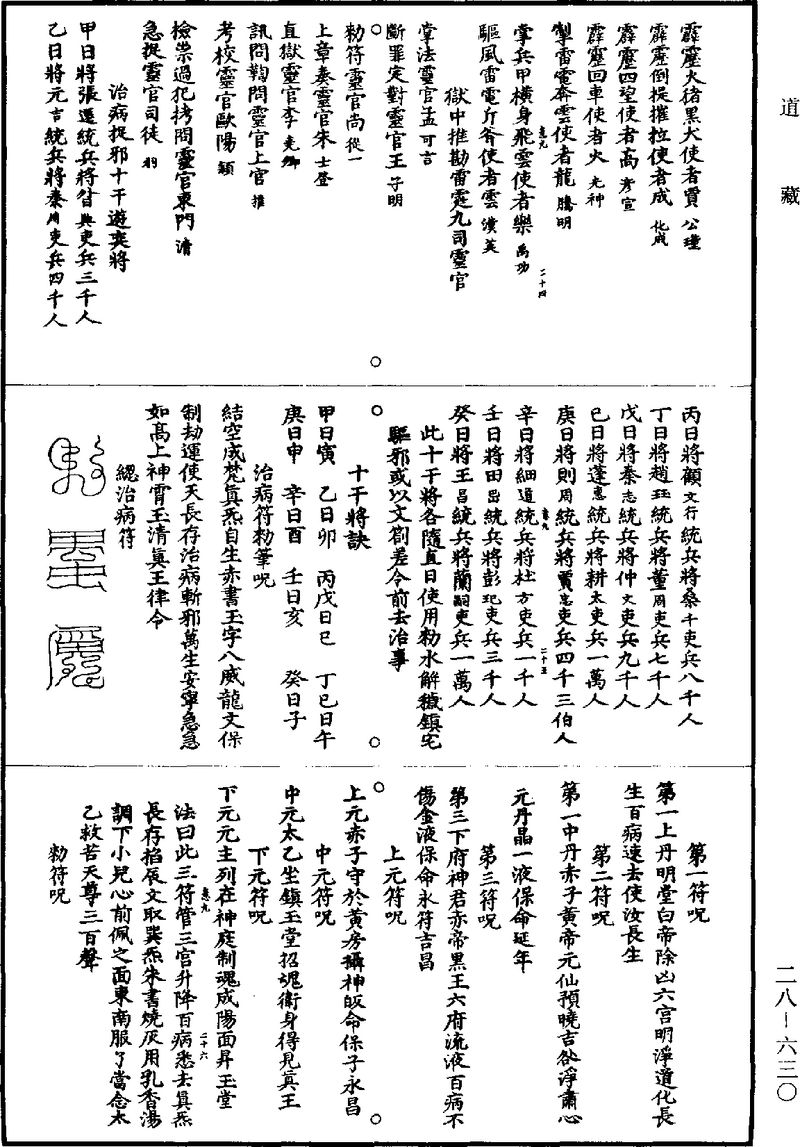 道藏
霹靂火猪黑犬使者賈公瓊
霹靂倒提摧拉使者成化成
霹靂四望使者高彥宣
霹靂回車使者火光神
掣雷電奔雲使者龍騰明
掌兵甲橫身飛雲使者樂禹功
卷九
二十四
驅風雷電斤斧使者雲漢英
獄中推勘雷霆九司靈官
掌法靈官孟可言
斷罪定對靈官王子明
勑符靈官尚從一
上章奏靈官朱士登
直獄靈官李堯卿
訊問鞫問靈官上官推
考校靈官歐陽穎
檢祟過犯拷問靈官東門清
急捉靈官司徒
治病捉邪十干遊奕將
甲日將張遜統兵將昝興吏兵三千人
乙日將元吉統兵將秦用吏兵四千人
丙日將顧文行統兵將桑千吏兵八千人
丁日將趙珏統兵將董用吏兵七千人
戊日將秦志統兵將仲文吏兵九千人
己日將蓬惠統兵將耕太吏兵一萬人
庚日將則用統兵將賈志吏兵四千三伯人
卷九
二十五
辛日將細道統兵將杜方吏兵一千人
壬日將田岊統兵將彭玘吏兵三千人
癸日將王昌統兵將蘭嗣吏兵一萬人
此十干將各隨直日使用勑水解穢鎮宅
驅邪或以文劄差令前去治事
十干將訣
甲日寅 乙日卯 丙戊日巳 丁己日午
庚日申 辛日酉 壬日亥 癸日子
治病符勑筆呪
結空成梵眞炁自生赤書玉字八威龍文保
制劫運使天長存治病斬邪萬生安寧急急
如高上神霄玉清眞王律令
總治病符
第一符呪
第一上丹明堂白帝除凶六宮明淨道化長
生百病速去使汝長生
第二符呪
第一中丹赤子黃帝元仙預曉吉欲淨肅心
元丹晶一液保命延年
第三符呪
第三下府神君赤帝黑王六府流液百病不
傷金液保命永符吉昌
上元符呪
上元赤子守於黃房攝神皈命保子永昌
中元符呪
中元太乙坐鎮玉堂招魂衛身得見眞王
下元符呪
下元元主列在神庭制魂咸陽面昇玉堂
卷九
二十六
法曰此三符管三官升降百病悉去眞炁
長存掐辰文取巽炁朱書燒灰用乳香湯
調下小兒心前佩之面東南服了當念太
乙救苦天尊三百聲
勑符呪
二八－六三〇